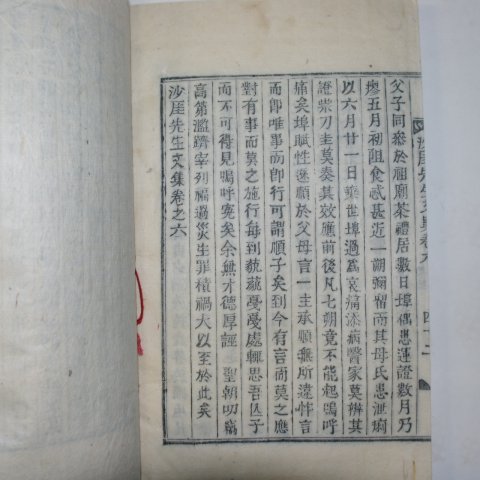 父子同叅於祖廟茶禮居數日埠偶患運證數月乃
瘳五月初阻食感甚近一朔彌留而其母氏患泄痢
以六月廿一日棄世埠過爲哀痛添病醫家莫辨其
證柴刀圭莫奏其效應前後凡七朔竟不能起嗚呼
痛矣埠賦性遜願於父母言一主承願無所違忤言
而卽唯事而卽行可謂順子矣到今有言而莫之應
對有事而莫之施行每到藐藐憂憂處輒思吾仄子
而不可得見嗚呼寃矣余無才德厚誣聖朝叨竊
高第濫躋宰列福過災生罪積禍大以至於此矣
沙厓先生文集卷之六
沙厓先生文集卷六